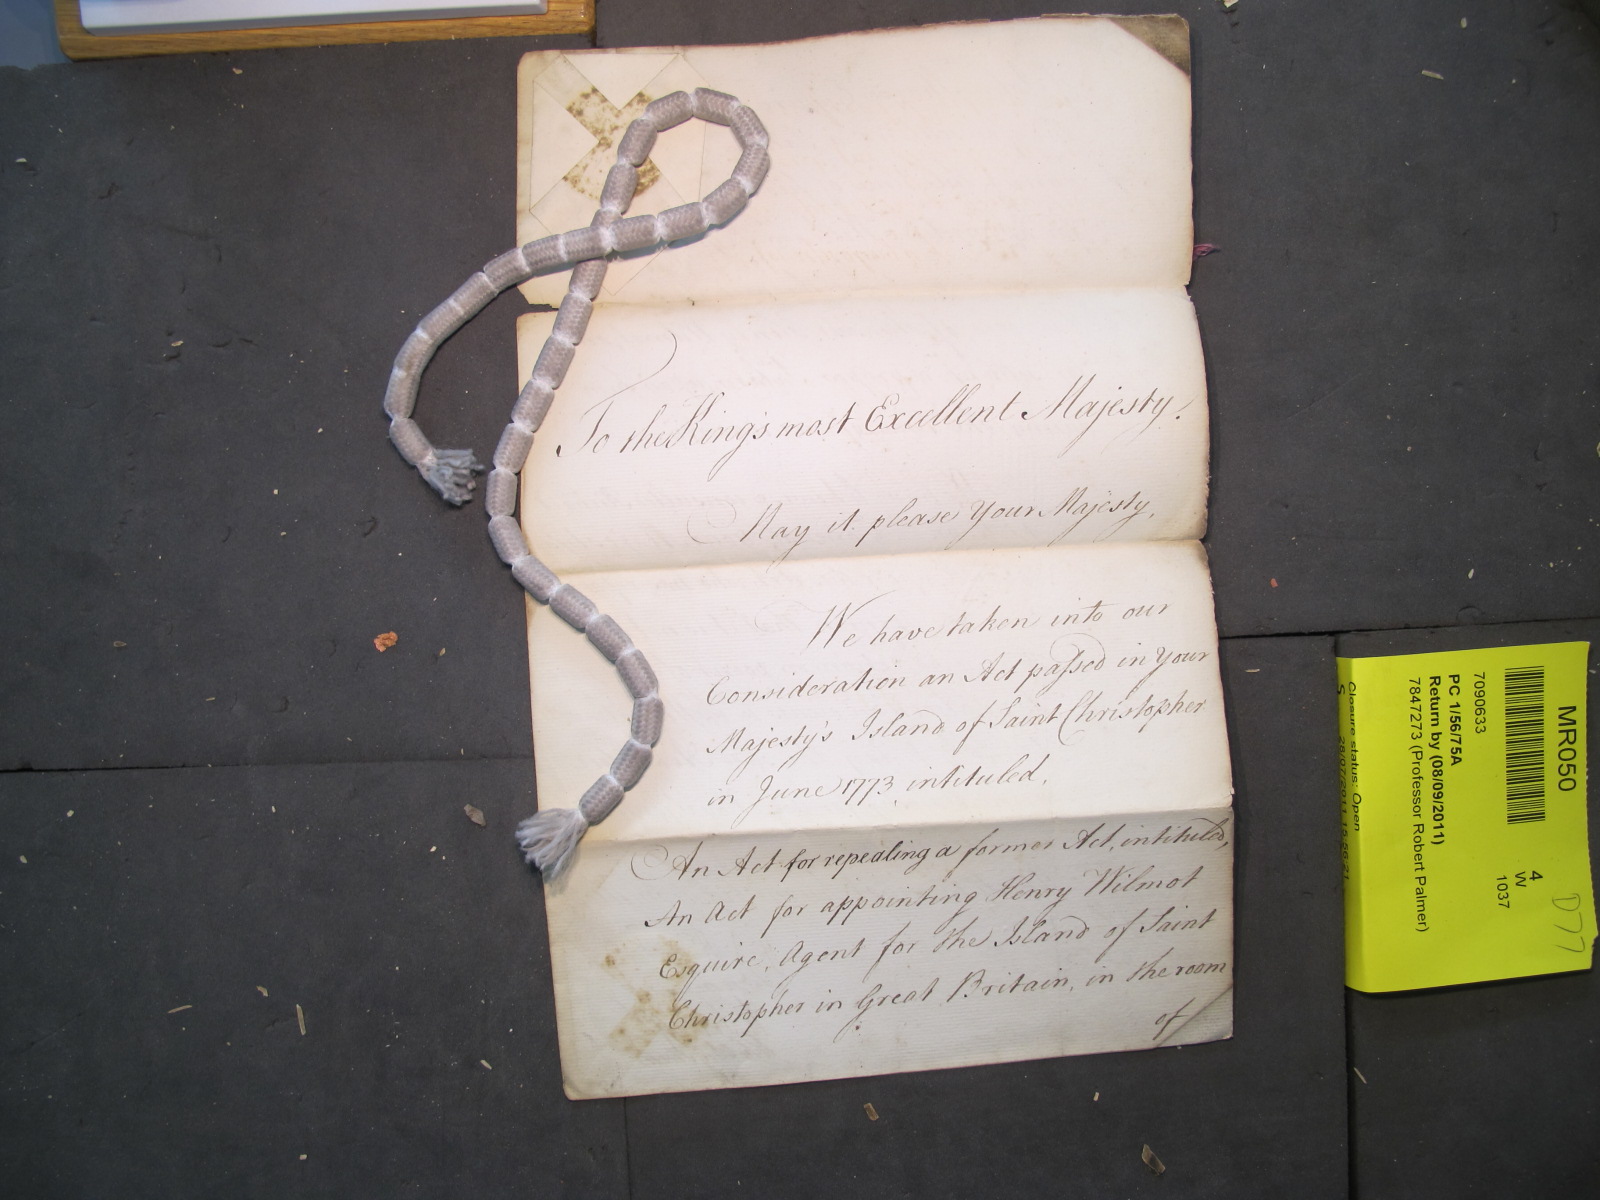 To the King's most Excellent Majesty.
May it please Your Majesty,
We have taken into our
Consideration an Act passed in Your
Majesty's Island of Saint Christopher
in June 1773, intituled,
An Act for repealing a former Act, intituled,
An Act for appointing Henry Wilmot
Esquire, Agent for the Island of Saint
Christopher in Great Britain, in the room
of
MR050
4
W
1037
D77
7090633
PC 1/56/75A
Return by (08/09/2011)
7847273 (Professor Robert Palmer)
Closure status: Open